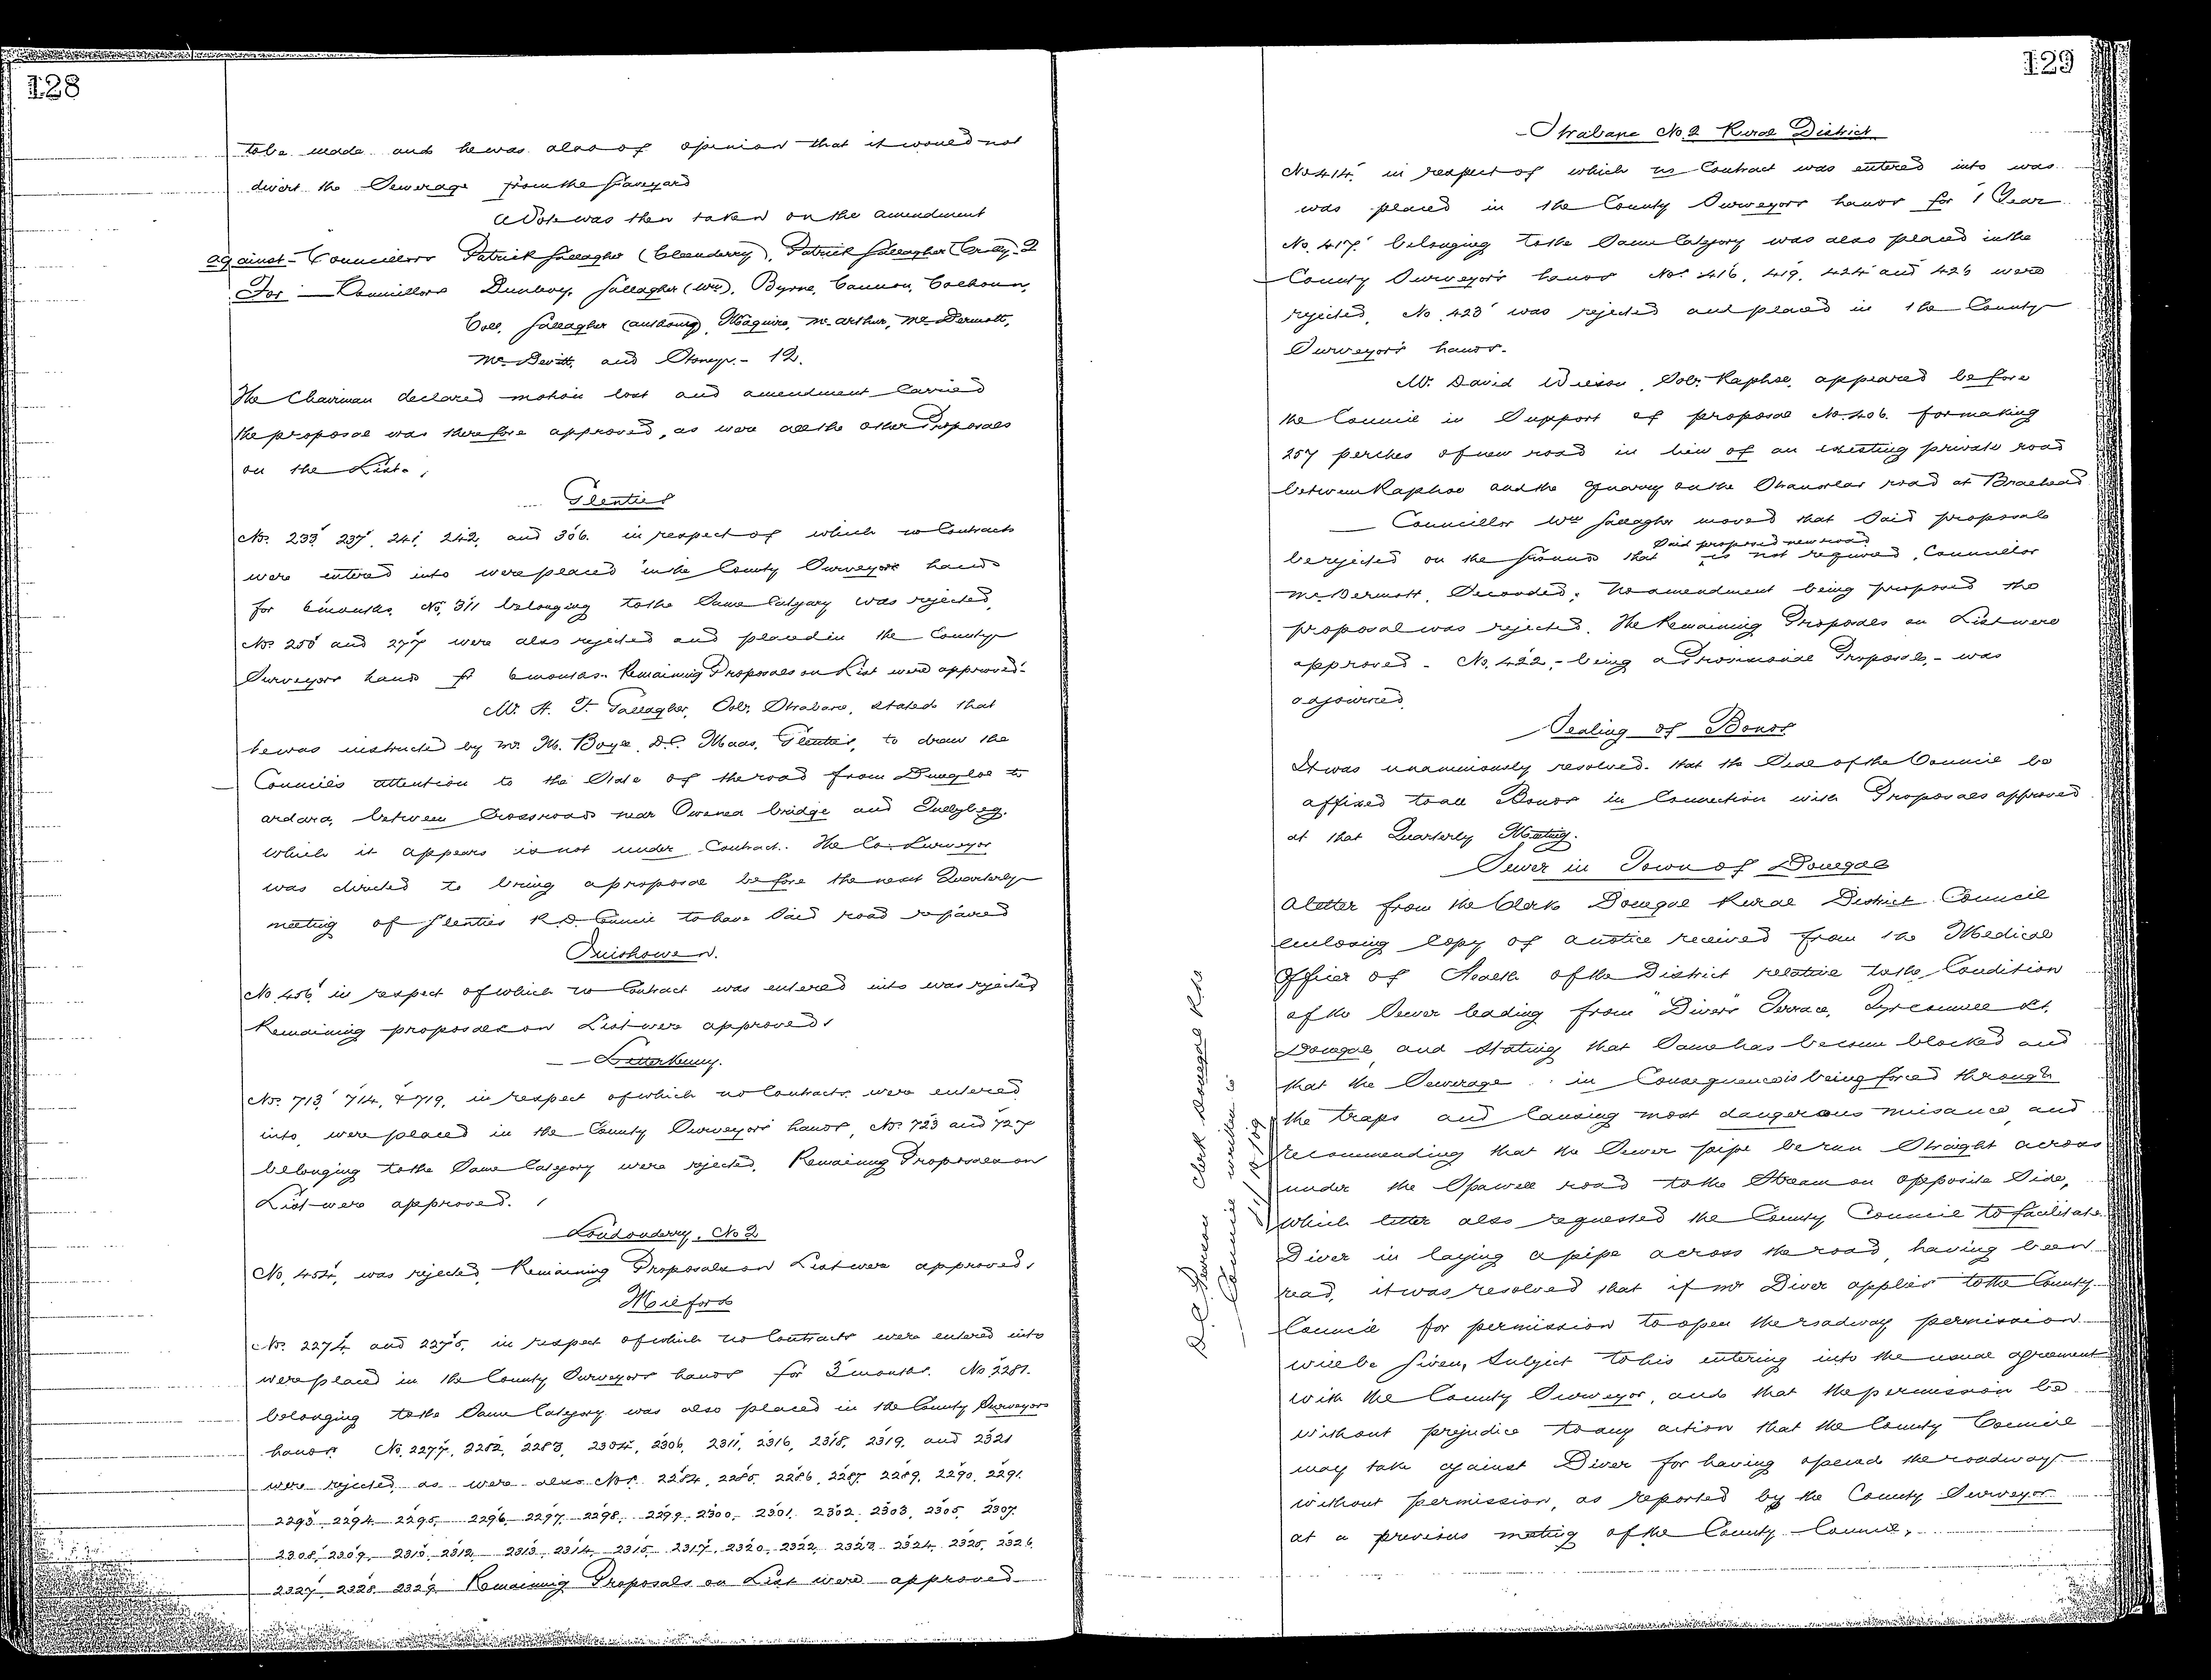 128
to be made and he was also of opinion that it would not
divert the Sewerage from the Graveyard
A Vote was then taken on the amendment
against - Councillors Patrick Gallagher (Cloonderry), Patrick Gallagher 2
For - Councillors Dunlevy, Gallagher (Wm), Byrne, Cannon, Colhoun,
Coll, Gallagher (Anthony), Maguire, McArthur, McDermott,
McDevitt, and Storey. - 12.
The Chairman declared motion lost and amendment Carried
the proposal was therefore approved, as were all the other Proposals
on the List.
Glenties
Nos. 233, 237, 241, 242, and 306. in respect of which no Contracts
were entered into were placed in the County Surveyors hands
for 6 months. No. 311 belonging to the Same Category was rejected,
Nos. 250 and 277 were also rejected and placed in the County
Surveyors hands for 6 months. Remaining Proposals on List were approved.
Mr. A. T. Gallagher, Solr. Strabane, stated that
he was instructed by Mr. M. Boyle, D.C. Maas, Glenties, to draw the
Councils attention to the State of the road from Dungloe to
Ardara, between Crossroads near Owenea bridge and Tullybeg.
which it appears is not under Contract. The Co. Surveyor
was directed to bring a proposal before the next Quarterly
meeting of Glenties R.D. Council to have Said road repaired
Inishowen.
No. 456 in respect of which no Contract was entered into was rejected
Remaining proposals on List were approved.
Letterkenny.
Nos. 713, 714, & 719, in respect of which no Contracts were entered
into, were placed in the County Surveyors' hands, Nos. 723 and 727
belonging to the Same Category were rejected. Remaining Proposals on
List were approved.
Londonderry, No 2
No. 454, was rejected, Remaining Proposals on List were approved.
Milford
Nos. 2274 and 2275, in respect of which no Contracts were entered into
were placed in the County Surveyors hands for 3 months. No 2281.
belonging to the Same Category was also placed in the County Surveyors
hands. No. 2277, 2282, 2283, 2304, 2306, 2311, 2316, 2318, 2319, and 2321
were rejected as were also Nos. 2284, 2285, 2286, 2287, 2289, 2290, 2291.
2293, 2294, 2295, 2296, 2297, 2298, 2299, 2300, 2301, 2302, 2303, 2305, 2307.
2308, 2309, 2310, 2312, 2313, 2314, 2315, 2317, 2320, 2322, 2323, 2324, 2325, 2326
2327, 2328, 2329 Remaining Proposals on List were approved
129
Strabane No. 2 Rural District
No 414, in respect of which no Contract was entered into was
was placed in the County Surveyors hands for 1 Year
No. 417 belonging to the Same Category was also placed in the
County Surveyor's hands Nos. 416, 419, 424 and 426 were
rejected. No 423 was rejected and placed in the County
Surveyor's hands.
Mr. David Wilson, Solr. Raphoe, appeared before
the Council in Support of proposal No. 406. for making
257 perches of new road in lieu of an existing private road
between Raphoe and the Quarry on the Stranorlar road at Braehead
Councillor Wm Gallagher moved that Said proposals
Said proposed new road
be rejected on the Ground that is not required, Councillor
McDermott, Seconded. No amendment being proposed the
proposal was rejected. The Remaining Proposals on List were
approved. No. 422, - being a Provisional Proposal, - was
adjourned.
Sealing of Bonds
It was unanimously resolved. that the Seal of the Council be
affixed to all Bonds in Connection with Proposals approved
at that Quarterly Meeting.
Sewer in Town of Donegal
A letter from the Clerk Donegal Rural District Council
enclosing Copy of a notice received from the Medical
Officer of Health of the District relative to the Condition
of the Sewer leading from "Divers" Terrace, Tyrconnell St.
Donegal, and Stating that Same has become blocked and
that the Sewerage in Consequence is being forced through
the traps and Causing most dangerous nuisance, and
recommending that the Sewer pipe be run Straight across
under the Spawell road to the Stream on opposite Side,
which letter also requested the County Council to facilitate
Diver in laying a pipe across the road, having been
read, it was resolved that if Mr Diver applies to the County
Council for permission to open the roadway permission
will be Given, Subject to his entering into the usual agreement
with the County Surveyor, and that the permission be
without prejudice to any action that the County Council
may take against Diver for having opened the roadway
without permission, as reported by the County Surveyor
at a previous meeting of the County Council.
Clerk Donegal Rural
Council written to
11/12/09